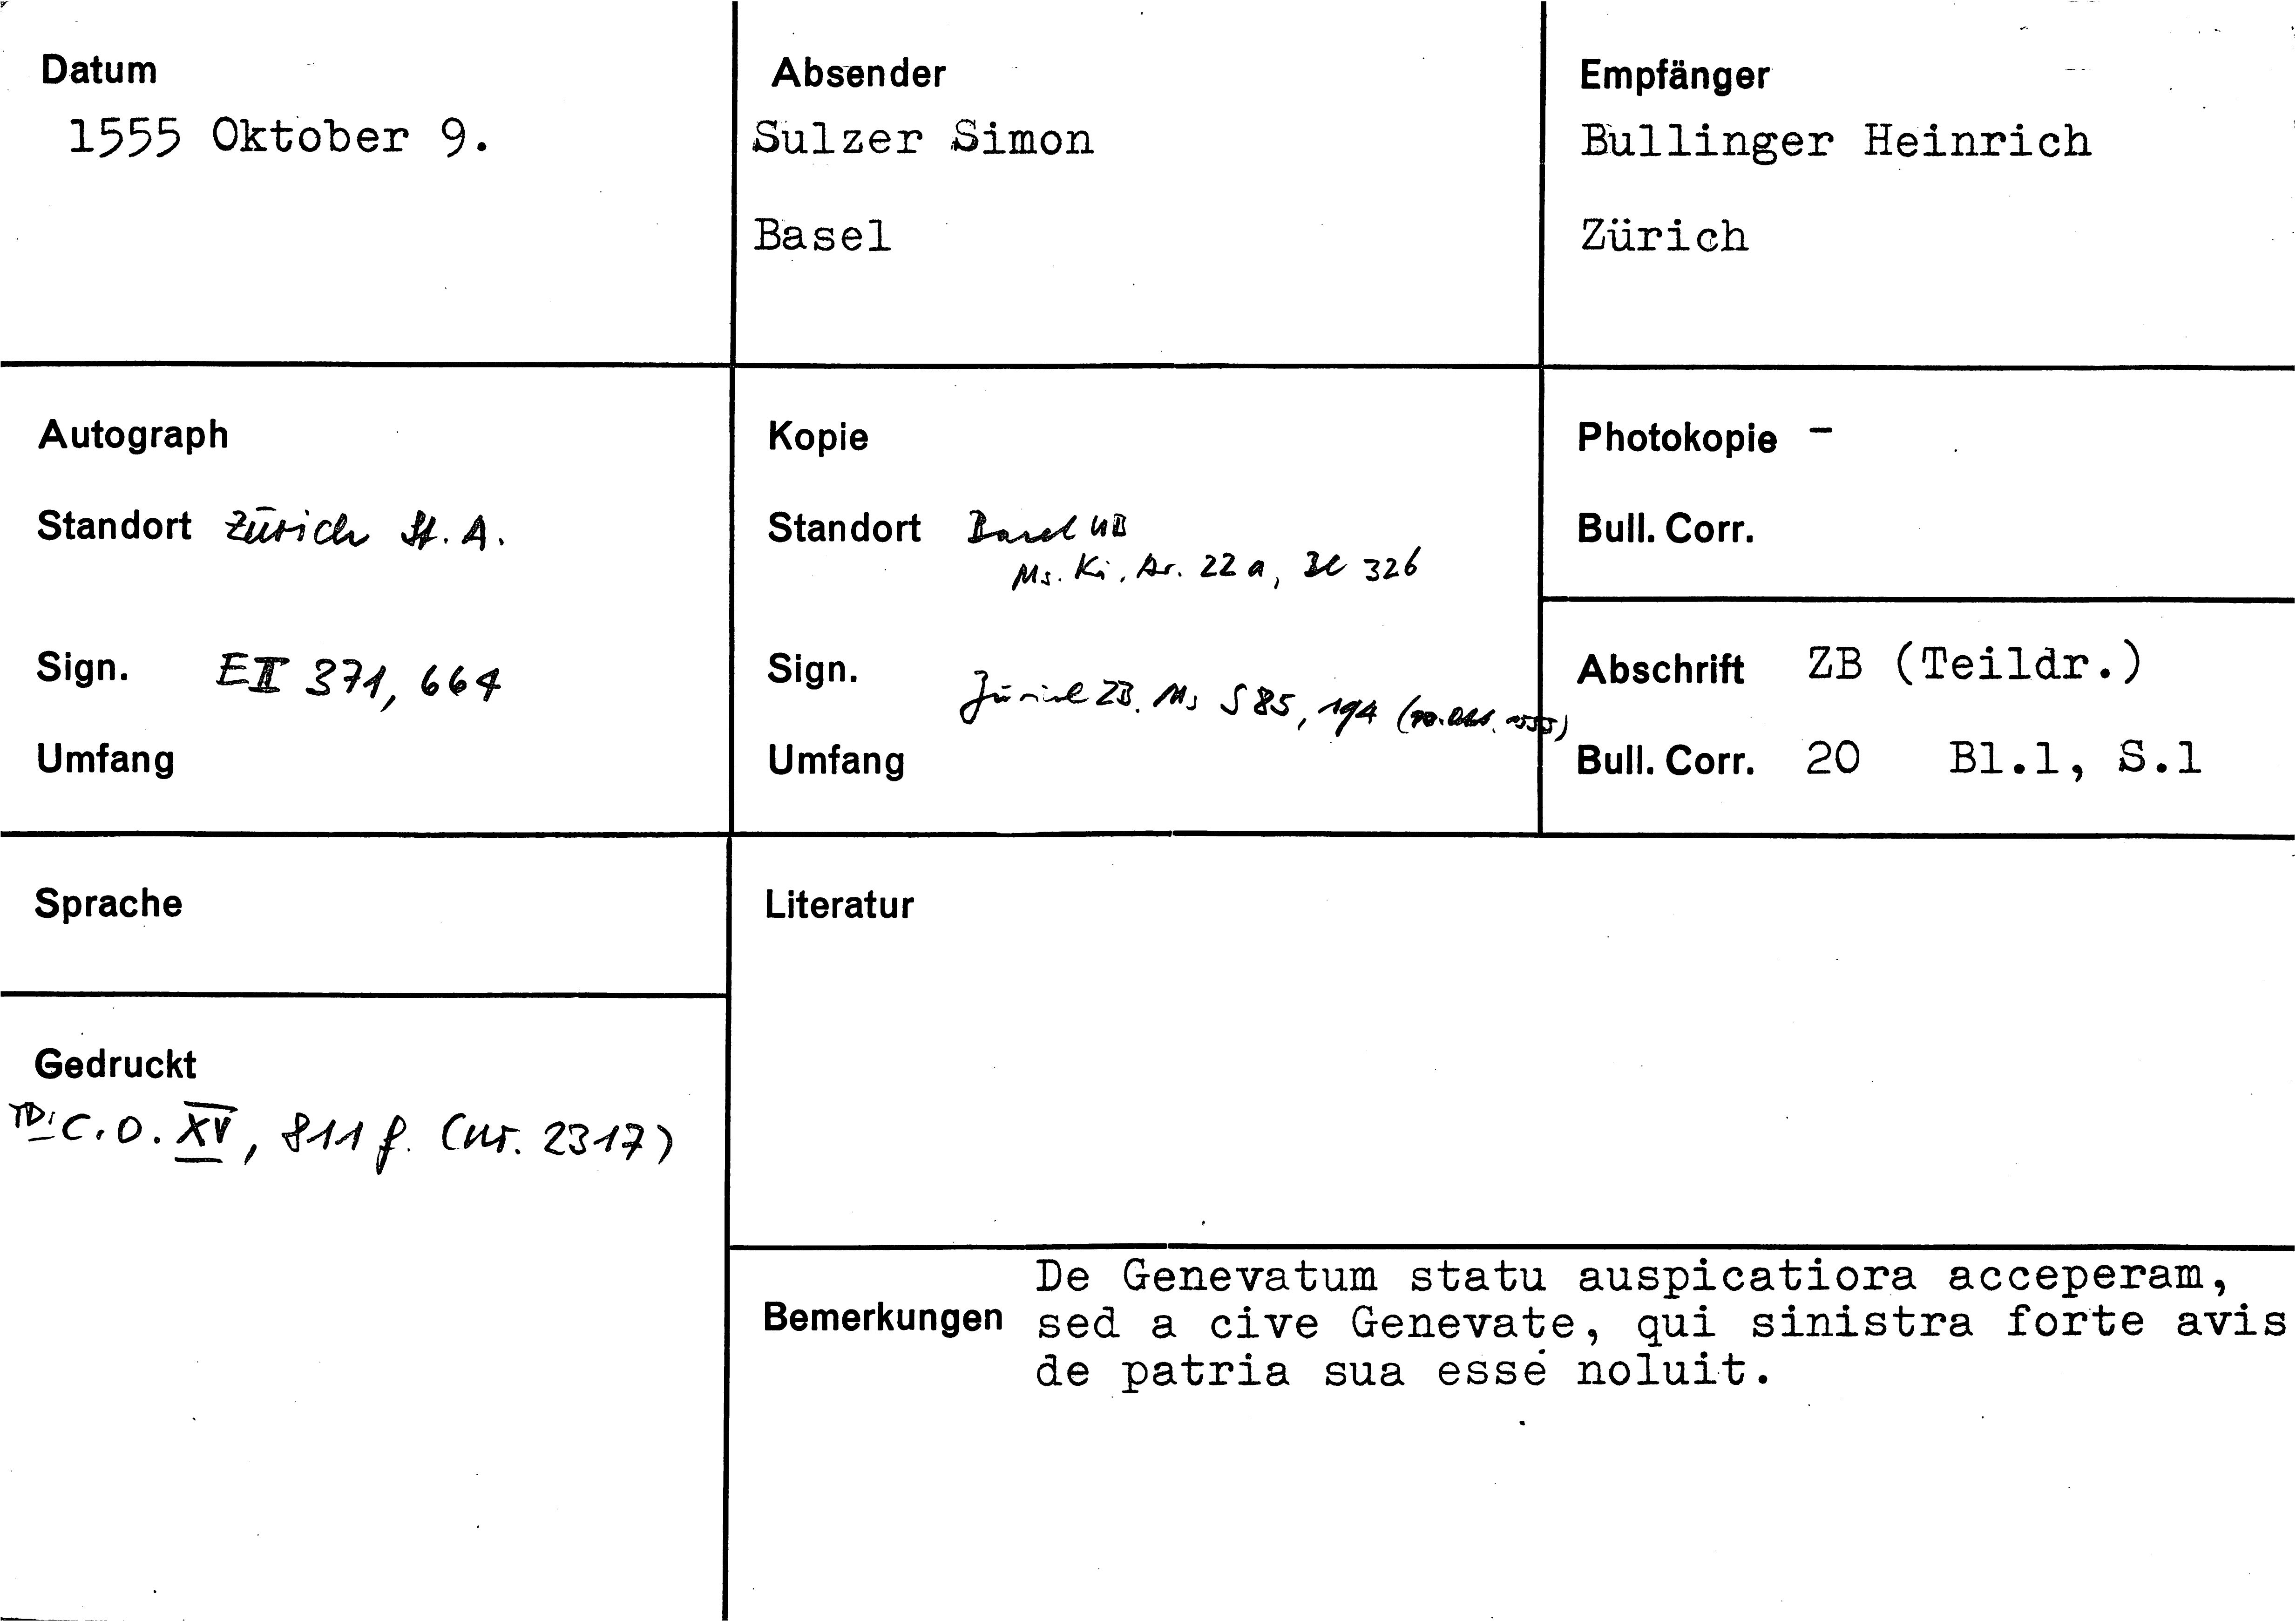 Datum
1555 Oktober 9.
Absender
Sulzer Simon
Basel
Empfänger
Bullinger Heinrich
Zürich
Autograph
Standort Zürich St. A.
Sign. E II 371, 664
Umfang
Kopie
Standort Basel UB
Ms. Ki. Ar. 22 a, Bl 326
Sign. Zürich ZB. Ms S 85, 194 (10. Okt. 1555)
Umfang
Photokopie -
Bull. Corr.
Abschrift ZB (Teildr.)
Bull. Corr. 20 Bl.1, S.1
Sprache
Gedruckt
TD: C.O. XV, 811 f. (Nr. 2317)
Literatur
Bemerkungen
De Genevatum statu auspicatiora acceperam,
sed a cive Genevate, qui sinistra forte avis
de patria sua esse noluit.